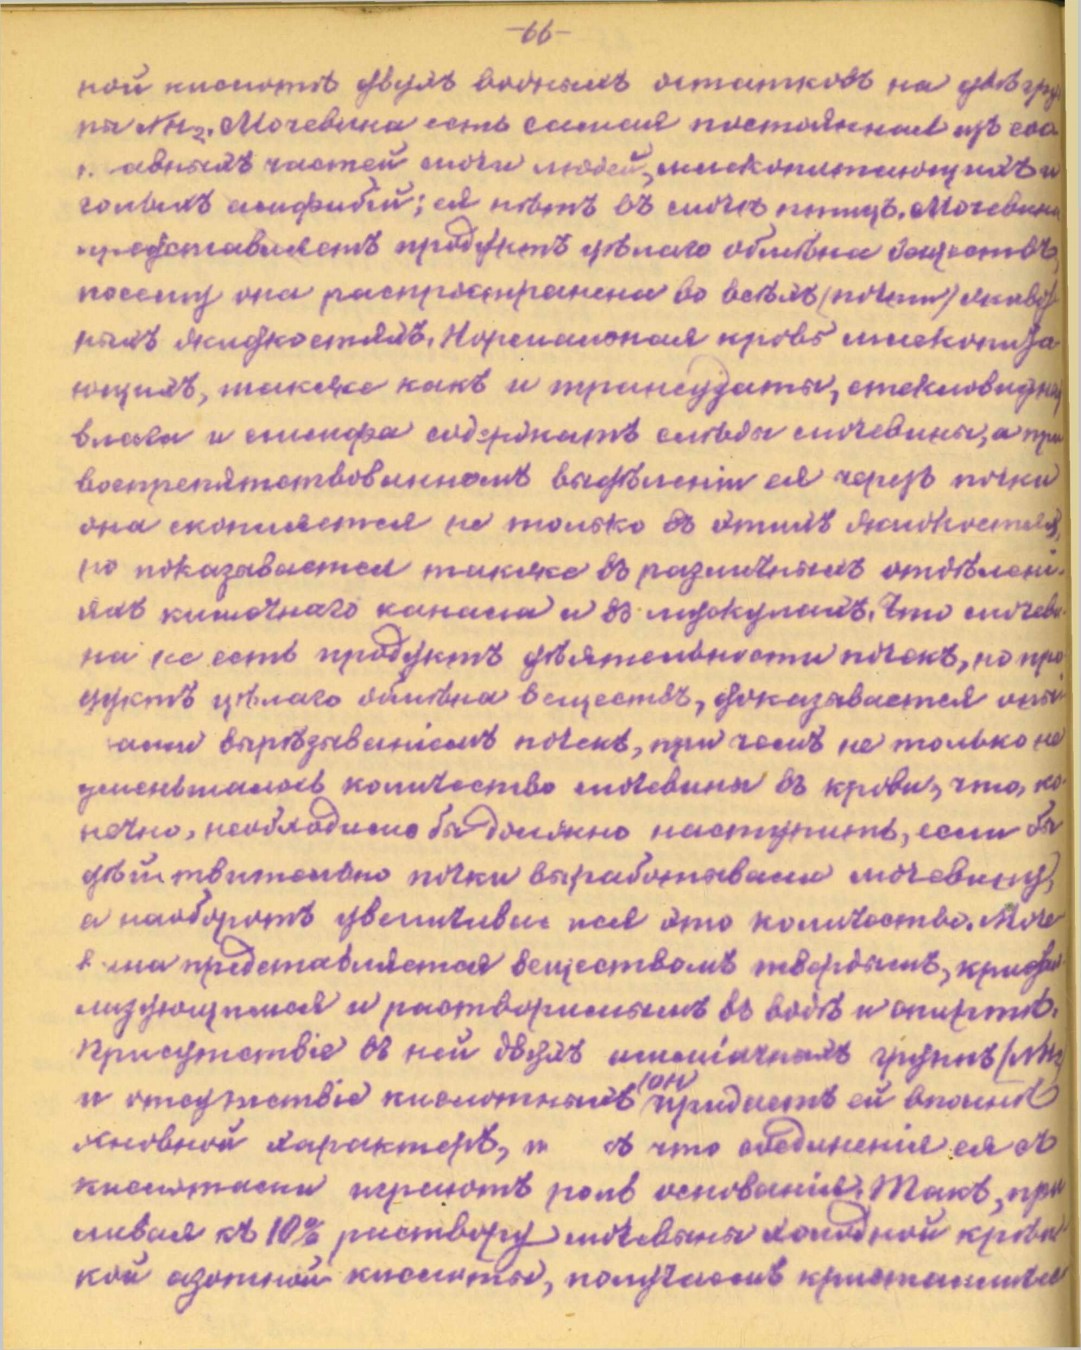 -66-
ной кислотѣ двухъ водныхъ остатковъ на двѣ груп
пы NH2. Мочевина есть самая постоянная изъ сос
т авныхъ частей мочи людей, млекопитающихъ и
голыхъ амфибій; ея нѣтъ въ мочѣ птицъ. Мочевина
представляетъ продуктъ цѣлаго обмѣна веществъ,
посему она распространена во всѣхъ (почти) живот
ныхъ жидкостяхъ. Нормальная кровь млекопита
ющихъ, также какъ и транссудаты, стекловидная
влага и лимфа содержатъ слѣды мочевины, а при
воспрепятствованномъ выдѣленіи ея черезъ почки
она скопляется не только въ этихъ жидкостяхъ,
но показывается также въ различныхъ отдѣлені-
яхъ кишечнаго канала и въ мускулахъ. Что мочеви-
на не есть продуктъ дѣятельности почекъ, но про
дуктъ цѣлаго обмѣна веществъ, доказывается опы
тами вырѣзываніемъ почекъ, при чемъ не только не
уменьшалось количество мочевины въ крови, что, ко-
нечно, необходимо бы должно наступить, если бы
дѣйствительно почки вырабатывали мочевину,
а наоборотъ увеличивалося это количество. Моче
вина представляется веществомъ твердымъ, кристал
лизующимся и растворимымъ въ водѣ и спиртѣ.
Присутствіе въ ней двухъ амміачныхъ группъ (NH2
и отсутствіе кислотныхъ (OH) придаетъ ей вполнѣ
основной характеръ, т ѣ что соединенія ея съ
кислотами играютъ роль основанія. Такъ, при
ливая къ 10% раствору мочевины холодной крѣп
кой азотной кислоты, получаемъ кристалличес